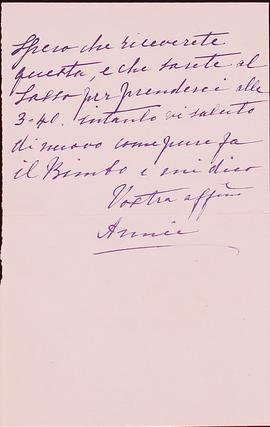 Spero che riceverete
questa, e che sarete al
Sasso per prenderci alle
3-40. intanto vi saluto
di nuovo come pure fa
il Bimbo e mi dico
Vostra affma
Annie